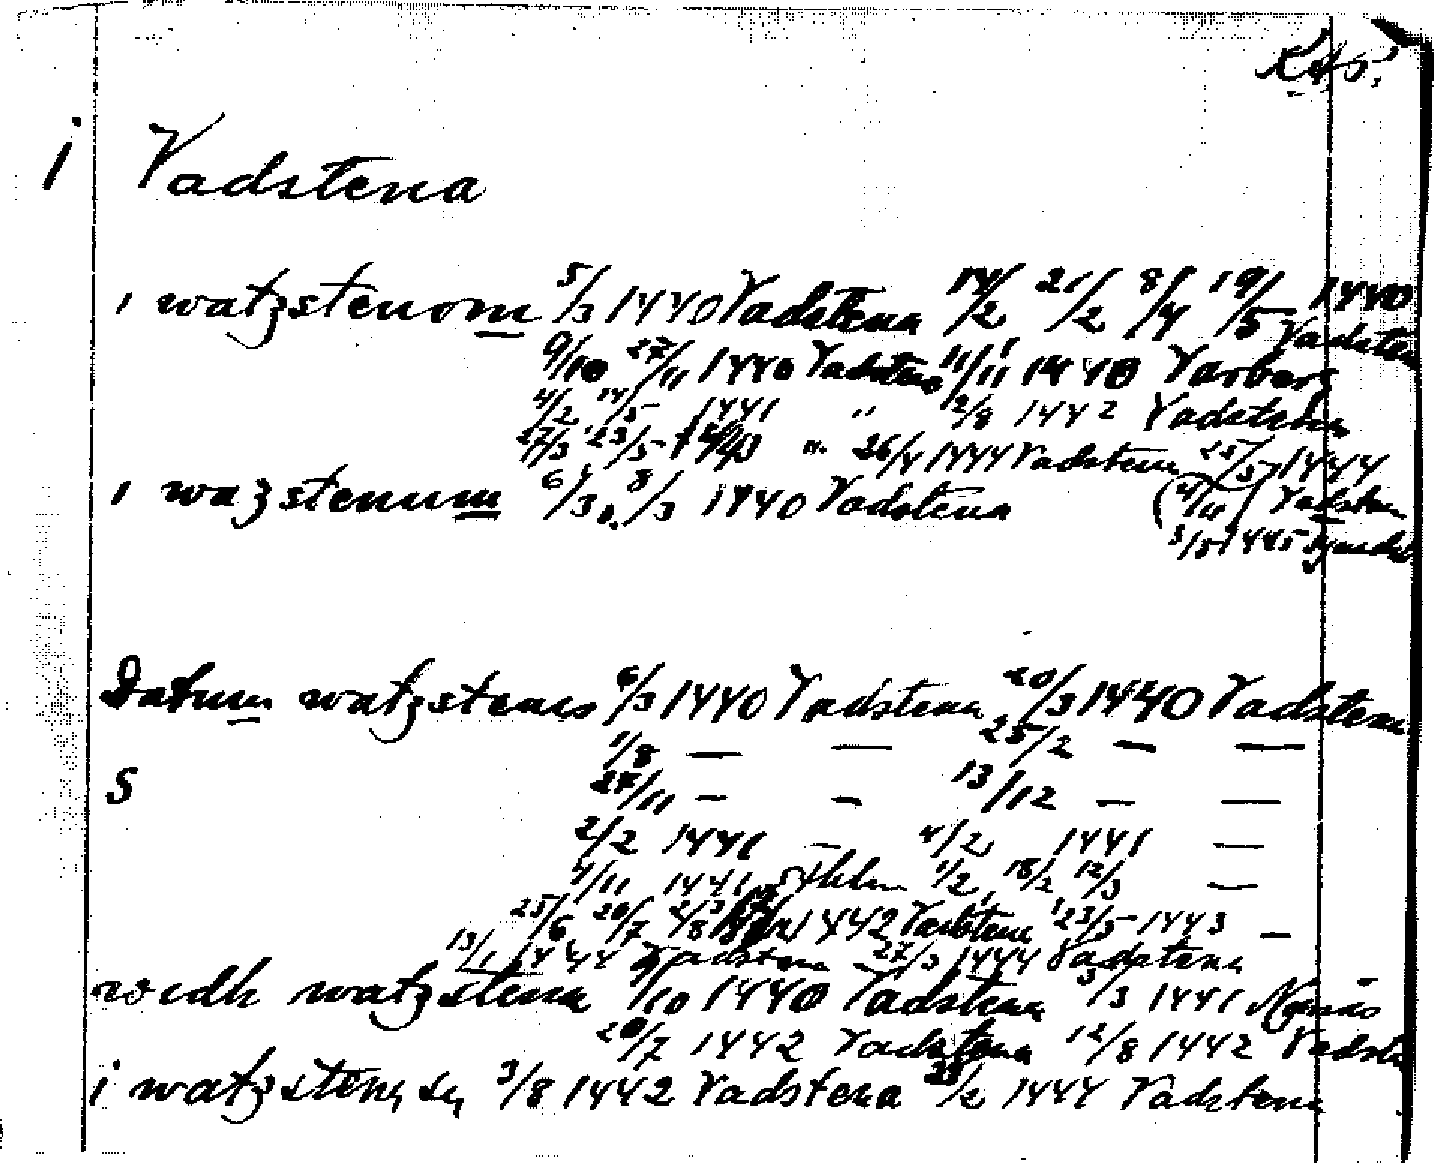 i Vadstena
i watzstenom 5/3 1440 Vadstena 14/2 21/2 8/4 19/5 1440 Vadstena
9/10 27/11 1440 Vadstena 11/11 1440 Varberg
4/2 14/5 1441 " 12/8 1442 Vadstena
27/3 23/5 " 26/4 1444 Vadstena 25/5 1444
i wazstenum 6/3 8/3 1440 Vadstena (4/11 Vadsten
3/5 1445
Datum watzstenis 6/3 1440 Vadstena 20/3 1440 Vadstena
1/8 — — 25/2 — —
S 27/11 — — 13/12 — —
2/2 1441 — 4/2 1441 —
4/11 1441 1/2, 18/2 12/3 —
25/6 20/7 2/8 1442 Vadstena 23/5 1443 —
13/1 1444 Vadstena 27/3 1444 Vadstena
widh watzstena 9/10 1440 Vadstena 3/3 1441
20/7 1442 Vadstena 12/8 1442 Vadste
i watzstena 3/8 1442 Vadstena 25/2 1444 Vadstena